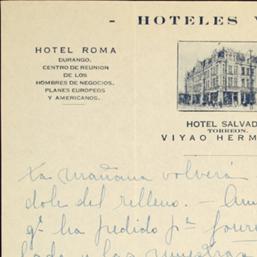 - HOTELES V
HOTEL ROMA
DURANGO.
CENTRO DE REUNION
DE LOS
HOMBRES DE NEGOCIOS.
PLANES EUROPEOS
Y AMERICANOS.
HOTEL SALVAD
TORREON.
VIYAO HERM
la mañana volverá
dole del relleno. — Am
qe ha pedido pa
lado y las muestras